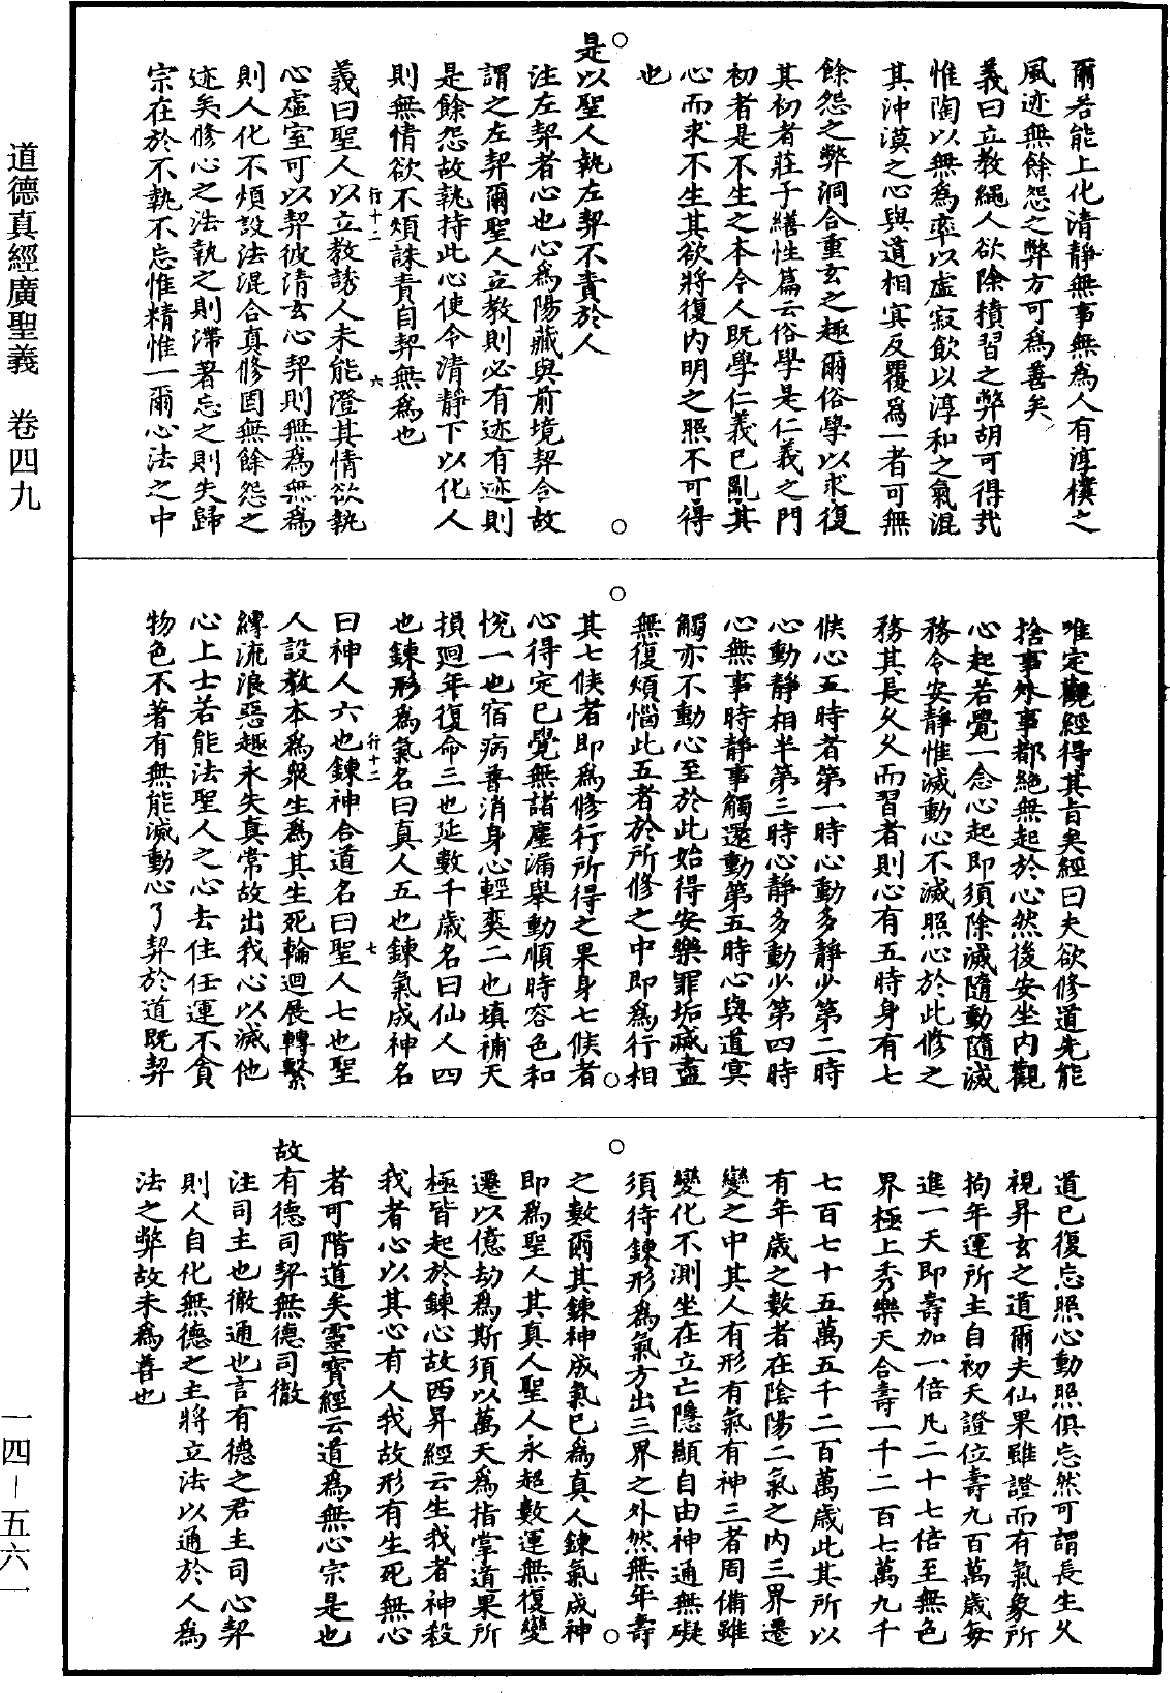 道德真經廣聖義　卷四九
一四－五六一
爾若能上化清靜無事無為人有淳樸之
風迹無餘怨之弊方可為善矣
義曰立教繩人欲除積習之弊胡可得哉
惟陶以無為率以虛寂飲以淳和之氣混
其沖漠之心與道相冥反覆為一者可無
餘怨之弊洞合重玄之趣爾俗學以求復
其初者莊子繕性篇云俗學是仁義之門
初者是不生之本令人既學仁義已亂其
心而求不生其欲將復內明之照不可得
也
是以聖人執左契不責於人
注左契者心也心為陽藏與前境契合故
謂之左契爾聖人立教則必有迹有迹則
是餘怨故執持此心使令清靜下以化人
則無情欲不煩誅責自契無為也
行十二　六
義曰聖人以立教誘人未能澄其情欲執
心虛室可以契彼清玄心契則無為無為
則人化不煩設法混合真修固無餘怨之
迹矣修心之法執之則滯著忘之則失歸
宗在於不執不忘惟精惟一爾心法之中
唯定觀經得其旨矣經曰夫欲修道先能
捨事外事都絕無起於心然後安坐內觀
心起若覺一念心起即須除滅隨動隨滅
務令安靜惟滅動心不滅照心於此修之
務其長久久而習者則心有五時身有七
候心五時者第一時心動多靜少第二時
心動靜相半第三時心靜多動少第四時
心無事時靜事觸還動第五時心與道冥
觸亦不動心至於此始得安樂罪垢滅盡
無復煩惱此五者於所修之中即為行相
其七候者即為修行所得之果身七候者
心得定已覺無諸塵漏舉動順時容色和
悅一也宿病普消身心輕爽二也填補夭
損迴年復命三也延數千歲名曰仙人四
也鍊形為氣名曰真人五也鍊氣成神名
行十二　七
曰神人六也鍊神合道名曰聖人七也聖
人設教本為眾生為其生死輪迴展轉繫
縛流浪惡趣永失真常故出我心以滅他
心上士若能法聖人之心去住任運不貪
物色不著有無能滅動心了契於道既契
道已復忘照心動照俱忘然可謂長生久
視昇玄之道爾夫仙果雖證而有氣象所
拘年運所主自初天證位壽九百萬歲每
進一天即壽加一倍凡二十七倍至無色
界極上秀樂天合壽一千二百七萬九千
七百七十五萬五千二百萬歲此其所以
有年歲之數者在陰陽二氣之內三界遷
變之中其人有形有氣有神三者周備雖
變化不測坐在立亡隱顯自由神通無礙
須待鍊形為氣方出三界之外然無年壽
之數爾其鍊神成氣已為真人鍊氣成神
即為聖人其真人聖人永超數運無復變
遷以億劫為斯須以萬天為指掌道果所
極皆起於鍊心故西昇經云生我者神殺
我者心以其心有人我故形有生死無心
者可階道矣靈寶經云道為無心宗是也
故有德司契無德司徹
注司主也徹通也言有德之君主司心契
則人自化無德之主將立法以通於人為
法之弊故未為善也